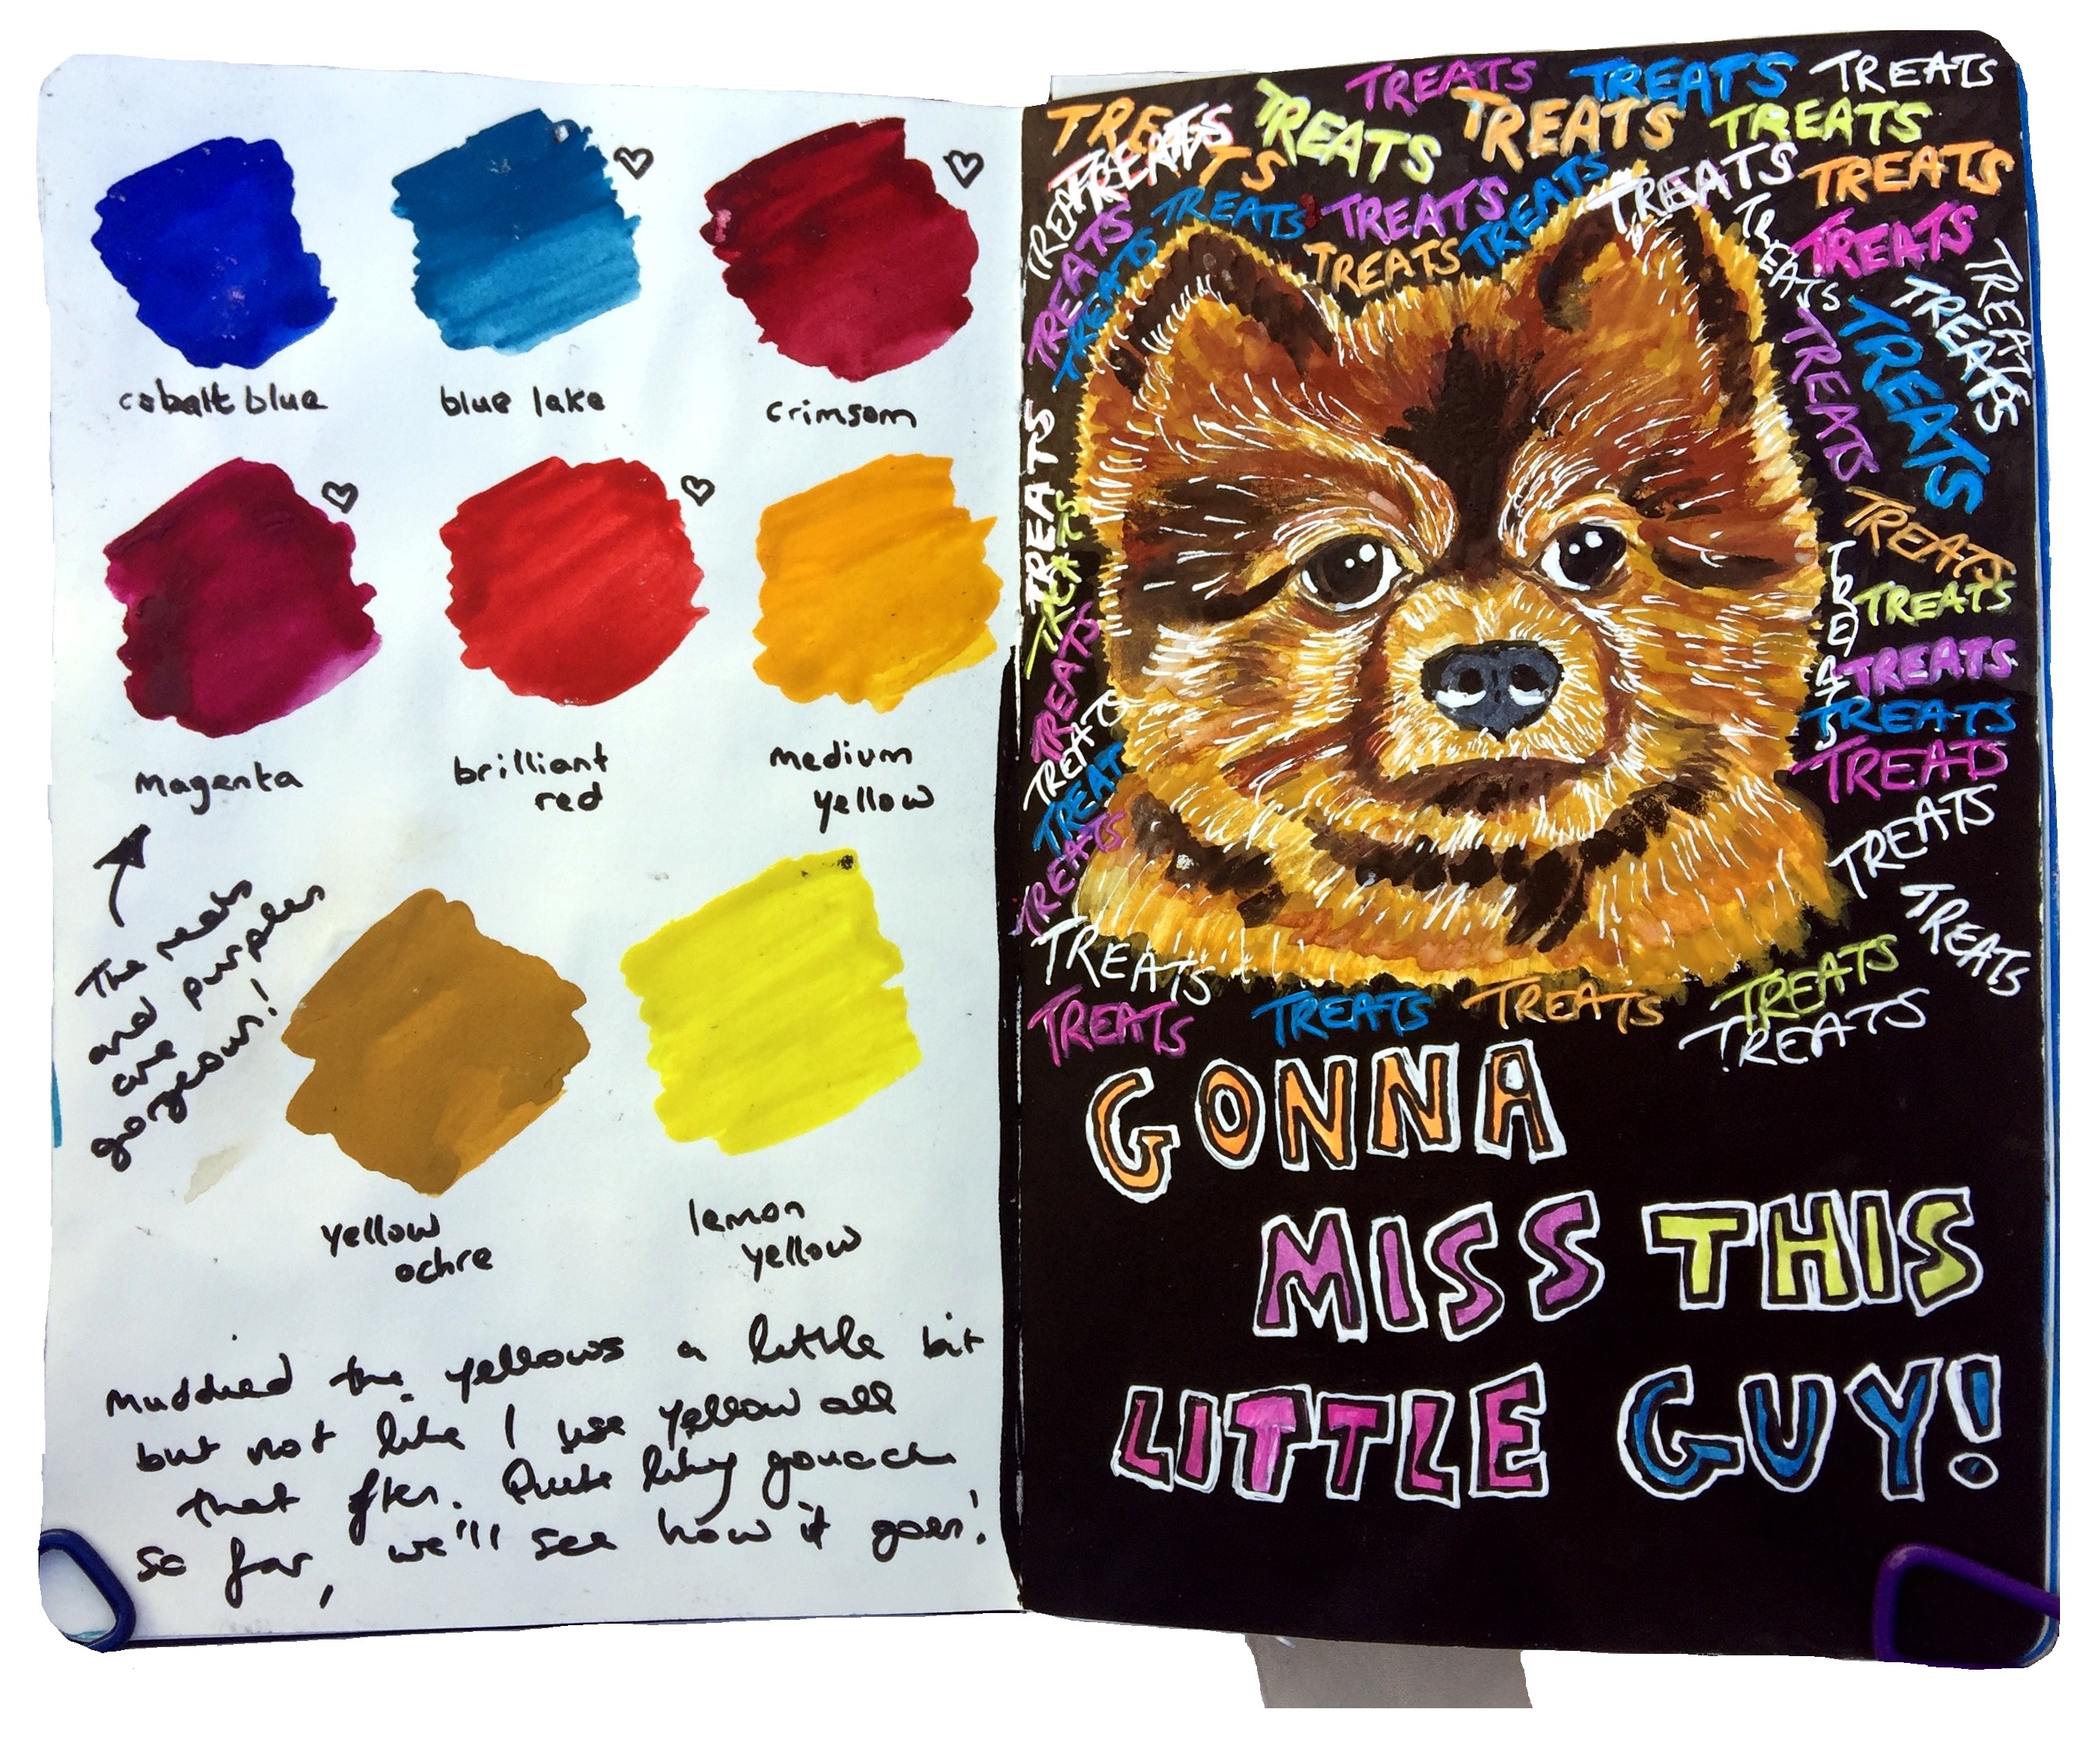 cobalt blue
blue lake
crimsom
magenta
brilliant
red
medium
yellow
The reds
and purples
are
gorgeous!
yellow
ochre
lemon
yellow
Muddied the yellows a little bit
but not like I use yellow all
that often. Quite liking gouache
so far, we'll see how it goes!
TREATS TREATS TREATS
TREATS TREATS TREATS TREATS
TREATS TREATS TREATS TREATS
TREATS TREATS TREATS TREATS
TREATS TREATS TREATS TREATS
TREATS TREATS TREATS
TREATS TREATS TREATS
TREATS TREATS
TREATS TREATS
TREATS TREATS
TREATS TREATS
TREATS TREATS
TREATS TREATS
TREATS TREATS
TREATS TREATS
TREATS TREATS TREATS TREATS
TREATS
GONNA
MISS THIS
LITTLE GUY!